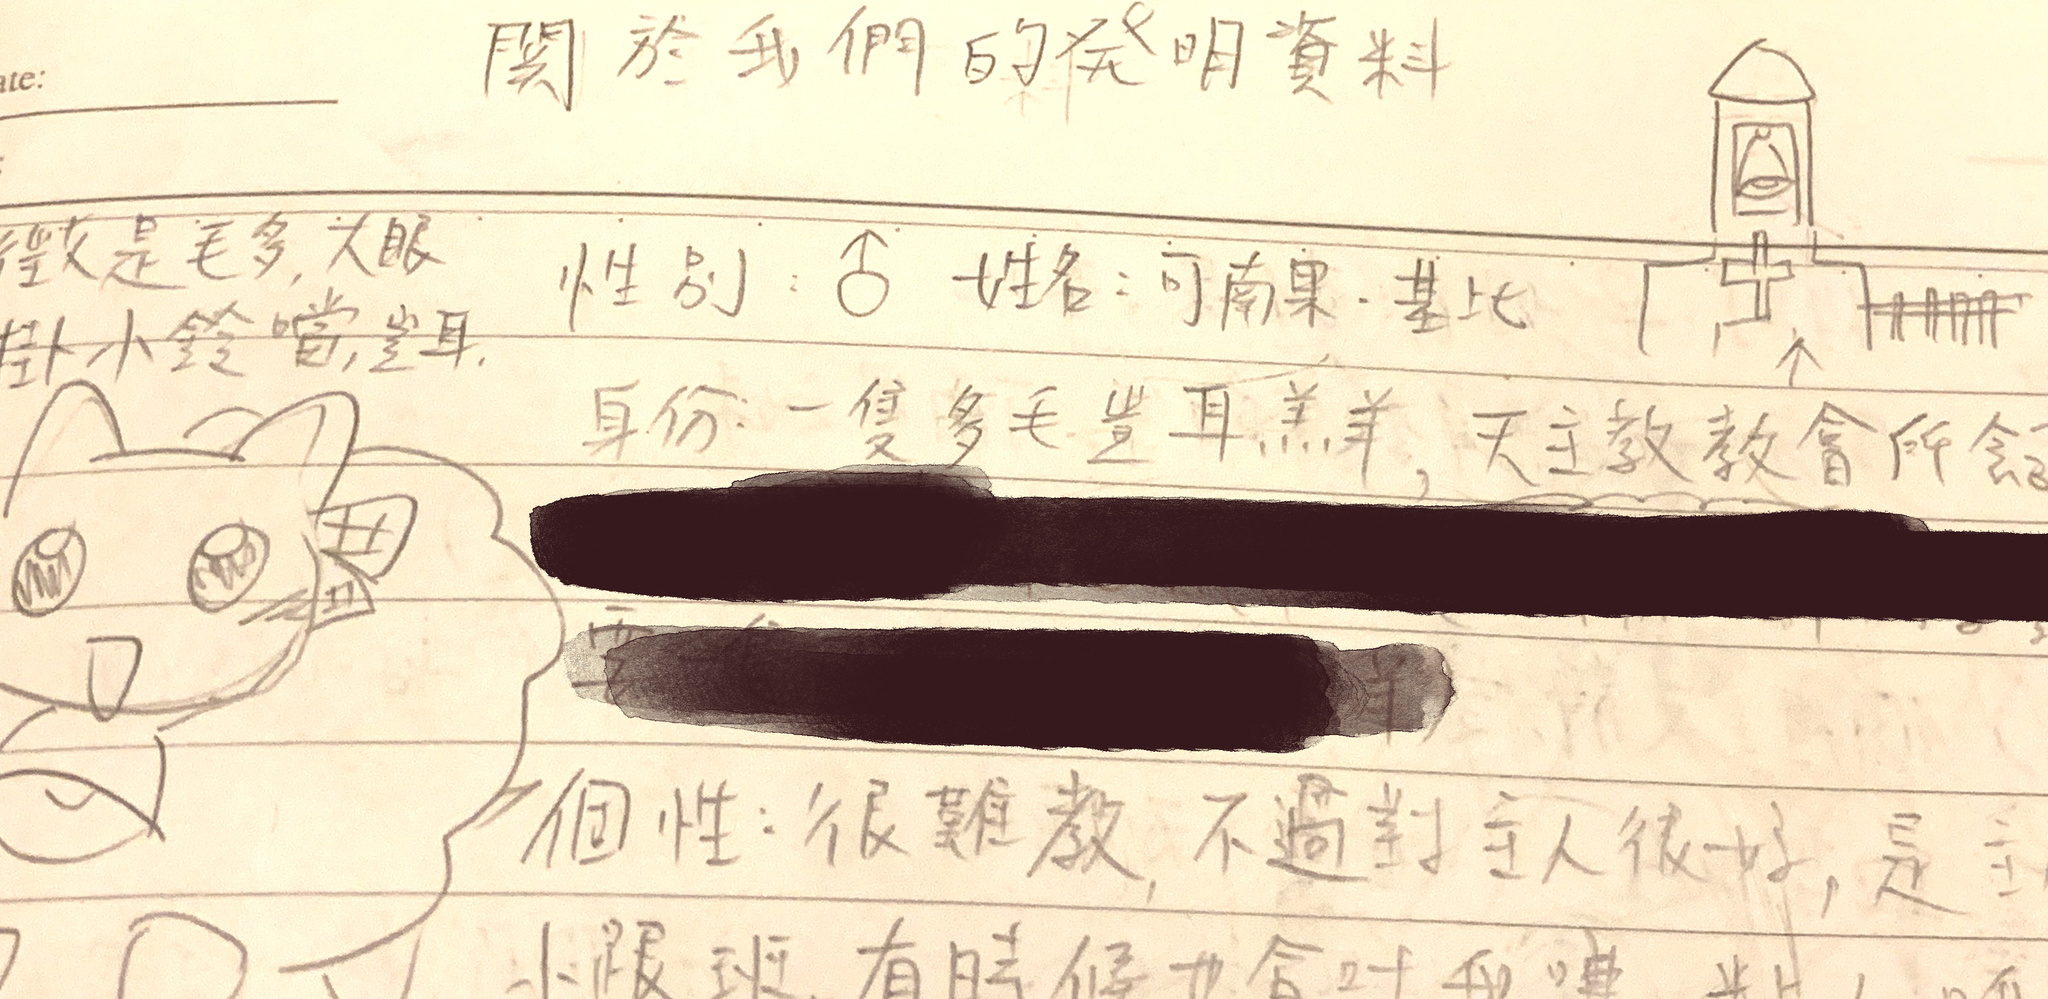 關於我們的発明資料
ate:
徵是毛多,大眼
掛小鈴噹,豈耳.
性別:♂ 姓名:可南果·基比
身份:一隻多毛豈耳羔羊,天主教教會所
個性:很難教,不過對主人很好,是主
小跟班,有時候也會叫我